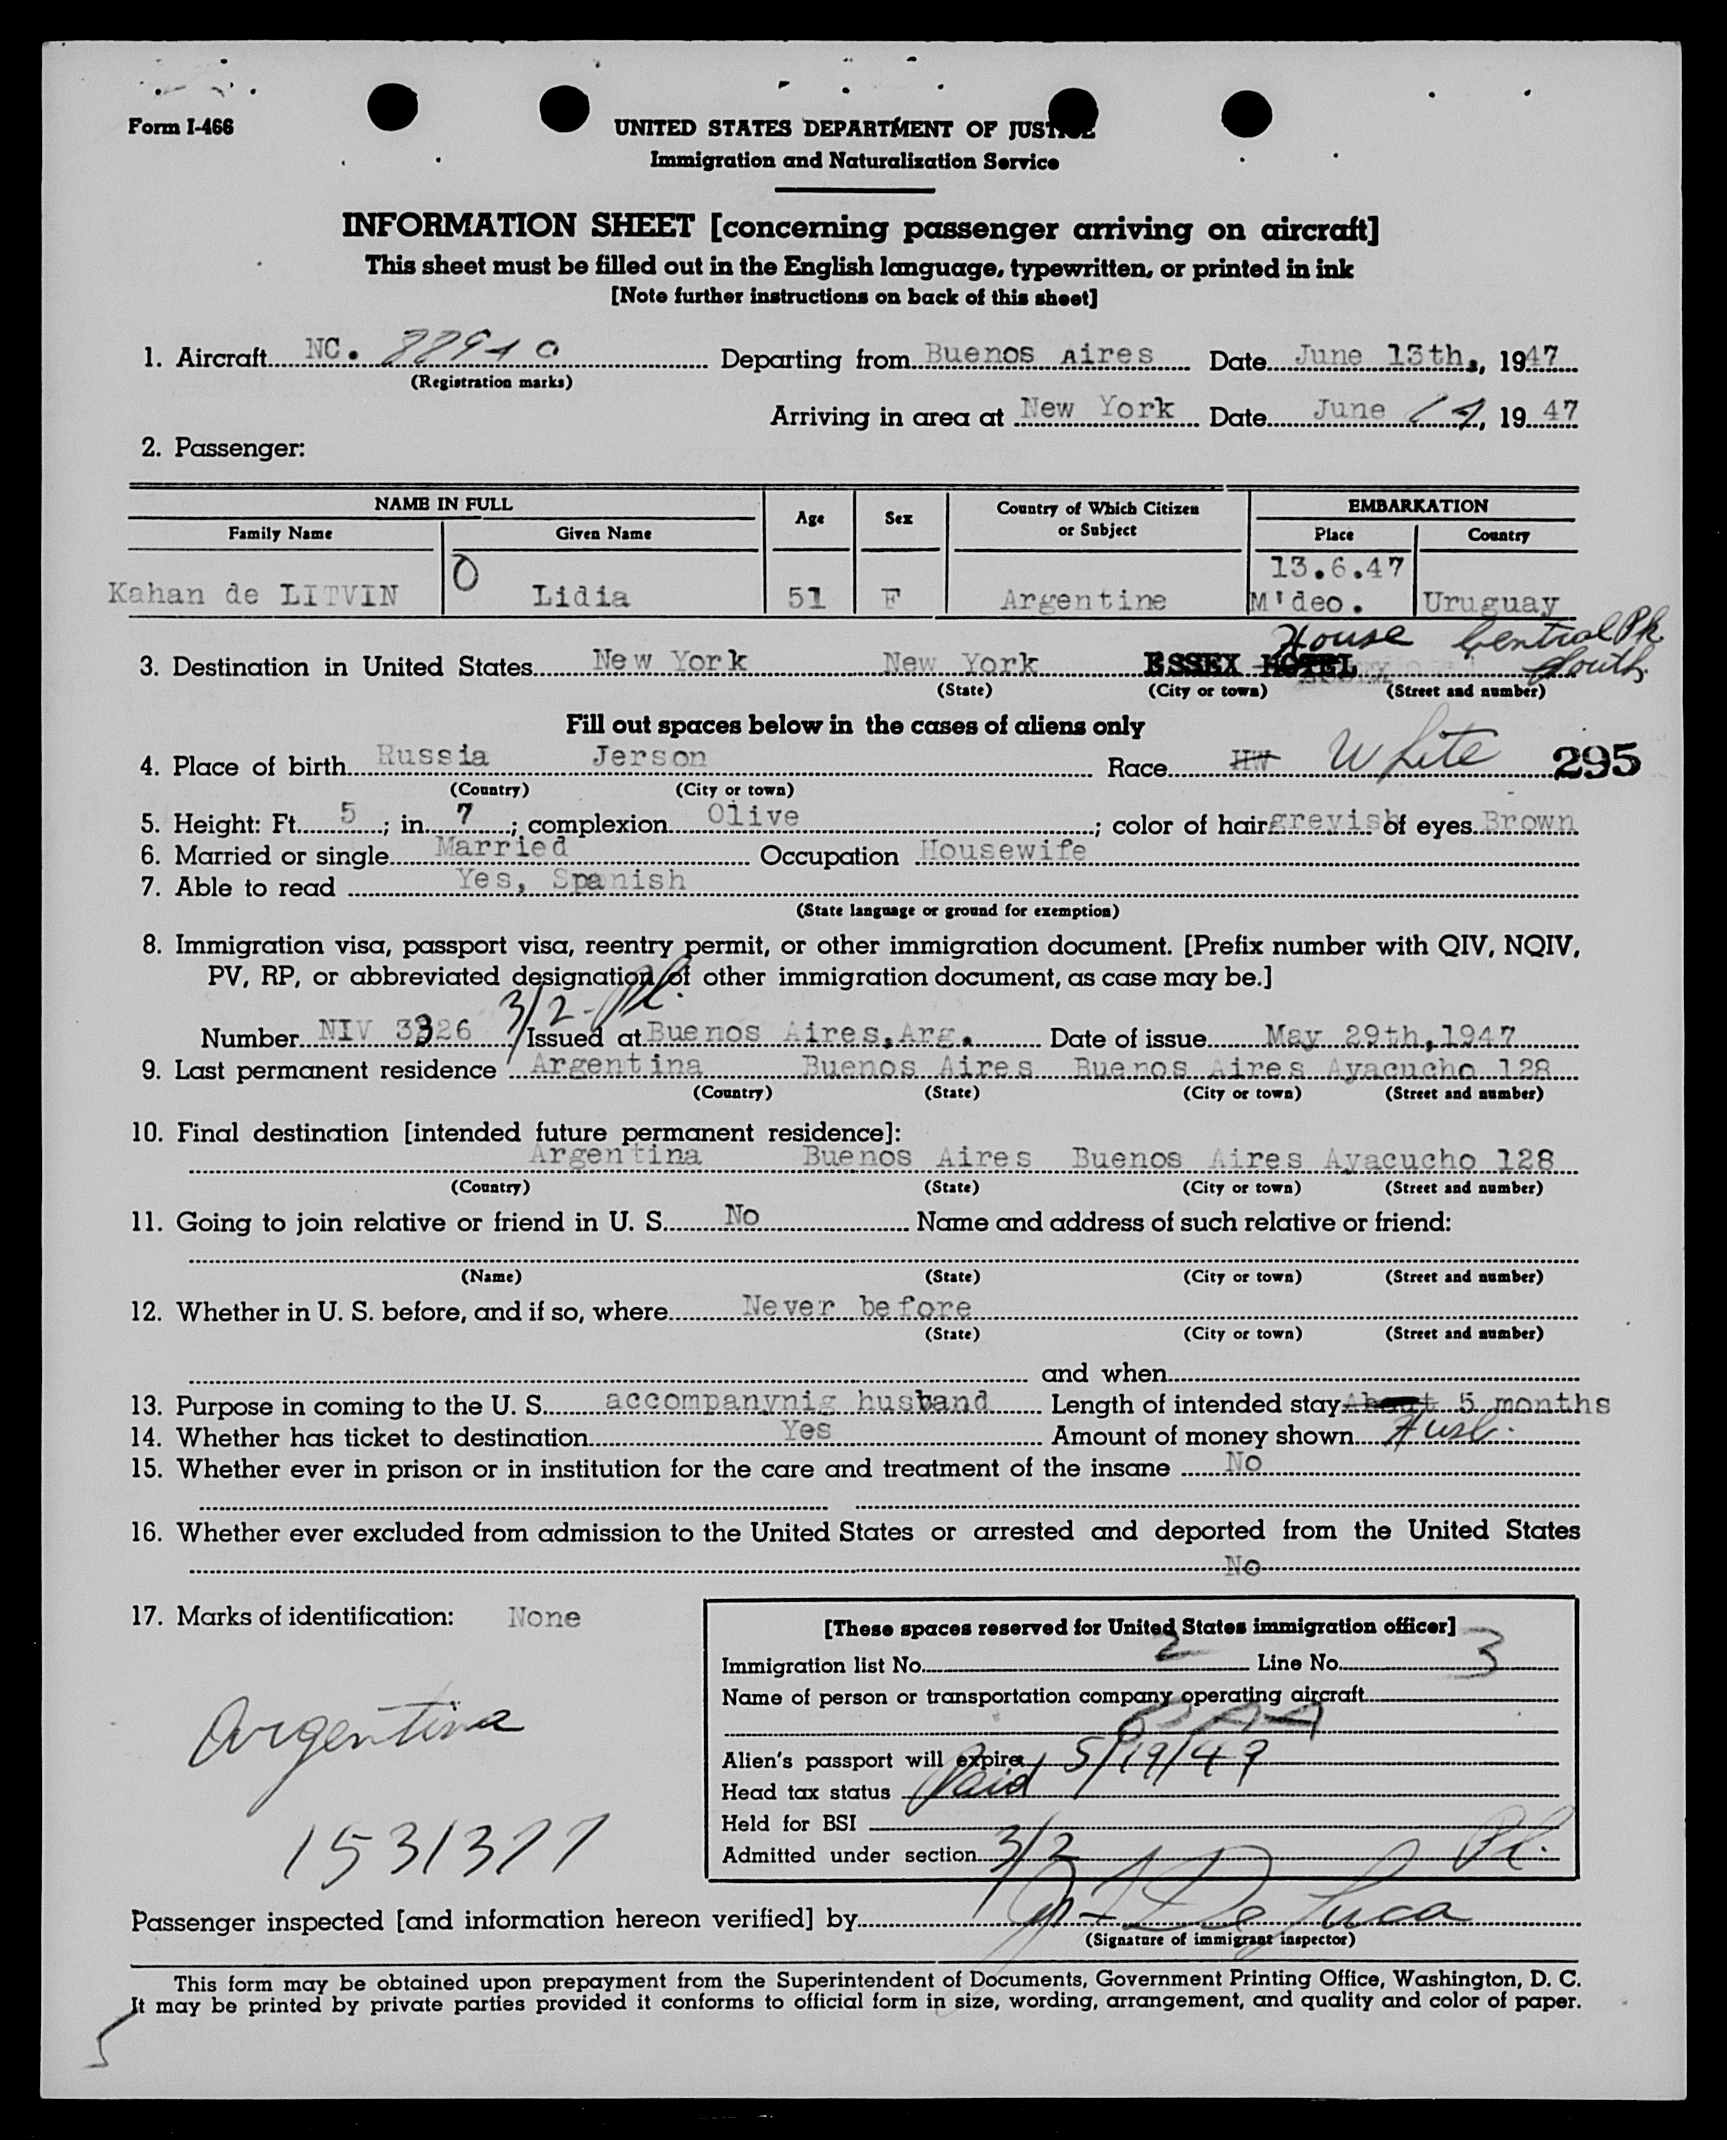 Form I-466
UNITED STATES DEPARTMENT OF JUSTICE
Immigration and Naturalization Service
INFORMATION SHEET [concerning passenger arriving on aircraft]
This sheet must be filled out in the English language, typewritten, or printed in ink
[Note further instructions on back of this sheet]
1. Aircraft NC. Departing from Buenos Aires Date June 13th., 1947
(Registration marks)
Arriving in area at New York Date June , 1947
2. Passenger:
NAME IN FULL Age Sex Country of Which Citizen or Subject EMBARKATION
Family Name Given Name Place Country
13.6.47
Kahan de LITVIN O Lidia 51 F Argentine M'deo. Uruguay
House Central Pk
3. Destination in United States New York New York ESSEX HOTEL South
(State) (City or town) (Street and number)
Fill out spaces below in the cases of aliens only
4. Place of birth Russia Jerson Race HW White 295
(Country) (City or town)
5. Height: Ft. 5; in. 7; complexion Olive; color of hair greyish of eyes Brown
6. Married or single Married Occupation Housewife
7. Able to read Yes, Spanish
(State language or ground for exemption)
8. Immigration visa, passport visa, reentry permit, or other immigration document. [Prefix number with QIV, NQIV,
PV, RP, or abbreviated designation of other immigration document, as case may be.]
3/2 - Pl.
Number NIV 3326 Issued at Buenos Aires, Arg. Date of issue May 29th, 1947
9. Last permanent residence Argentina Buenos Aires Buenos Aires Ayacucho 128
(Country) (State) (City or town) (Street and number)
10. Final destination [intended future permanent residence]:
Argentina Buenos Aires Buenos Aires Ayacucho 128
(Country) (State) (City or town) (Street and number)
11. Going to join relative or friend in U. S. No Name and address of such relative or friend:
(Name) (State) (City or town) (Street and number)
12. Whether in U. S. before, and if so, where Never before
(State) (City or town) (Street and number)
and when
13. Purpose in coming to the U. S. accompanynig husband Length of intended stay About 5 months
14. Whether has ticket to destination Yes Amount of money shown Husb.
15. Whether ever in prison or in institution for the care and treatment of the insane No
16. Whether ever excluded from admission to the United States or arrested and deported from the United States
No
17. Marks of identification: None
[These spaces reserved for United States immigration officer]
Immigration list No. 2 Line No. 3
Name of person or transportation company operating aircraft
PAA
Argentina
Alien's passport will expire 5/19/49
Head tax status Paid
Held for BSI
1531377
Admitted under section 3/2 Pl.
Passenger inspected [and information hereon verified] by De Luca
(Signature of immigrant inspector)
This form may be obtained upon prepayment from the Superintendent of Documents, Government Printing Office, Washington, D. C.
It may be printed by private parties provided it conforms to official form in size, wording, arrangement, and quality and color of paper.